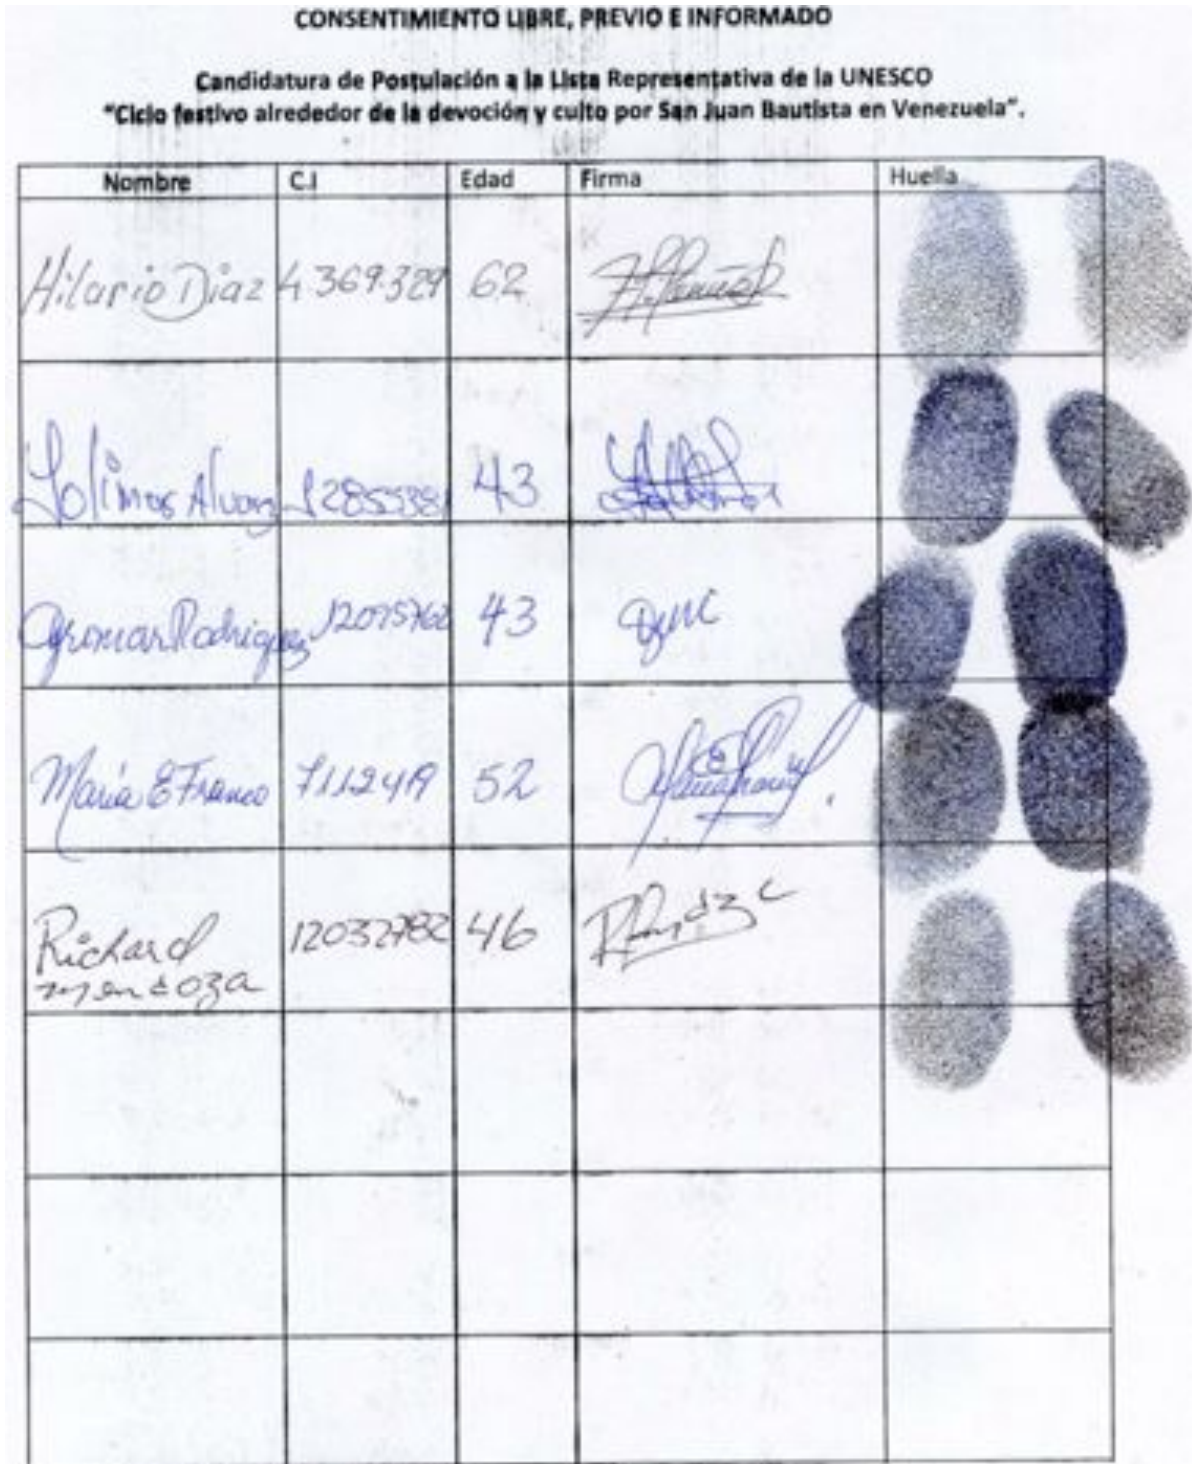 CONSENTIMIENTO LIBRE, PREVIO E INFORMADO
Candidatura de Postulación a la Lista Representativa de la UNESCO
"Ciclo festivo alrededor de la devoción y culto por San Juan Bautista en Venezuela".
Nombre C.I Edad Firma Huella
Hilario Diaz 4.369.329 62
43
Rodriguez 43
Maria E Franco 7112419 52
Richard 12032782 46
Mendoza